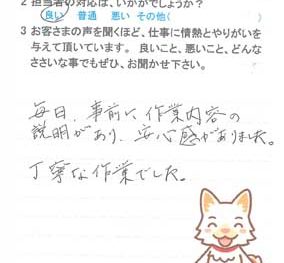 2 担当者の対応は、いかがでしょうか?
良い 普通 悪い その他(
3 お客さまの声を聞くほど、仕事に情熱とやりがいを
与えて頂いています。 良いこと、悪いこと、どんな
ささいな事でもぜひ、お聞かせ下さい。
毎日、事前に作業内容の
説明があり、安心感がありました。
丁寧な作業でした。